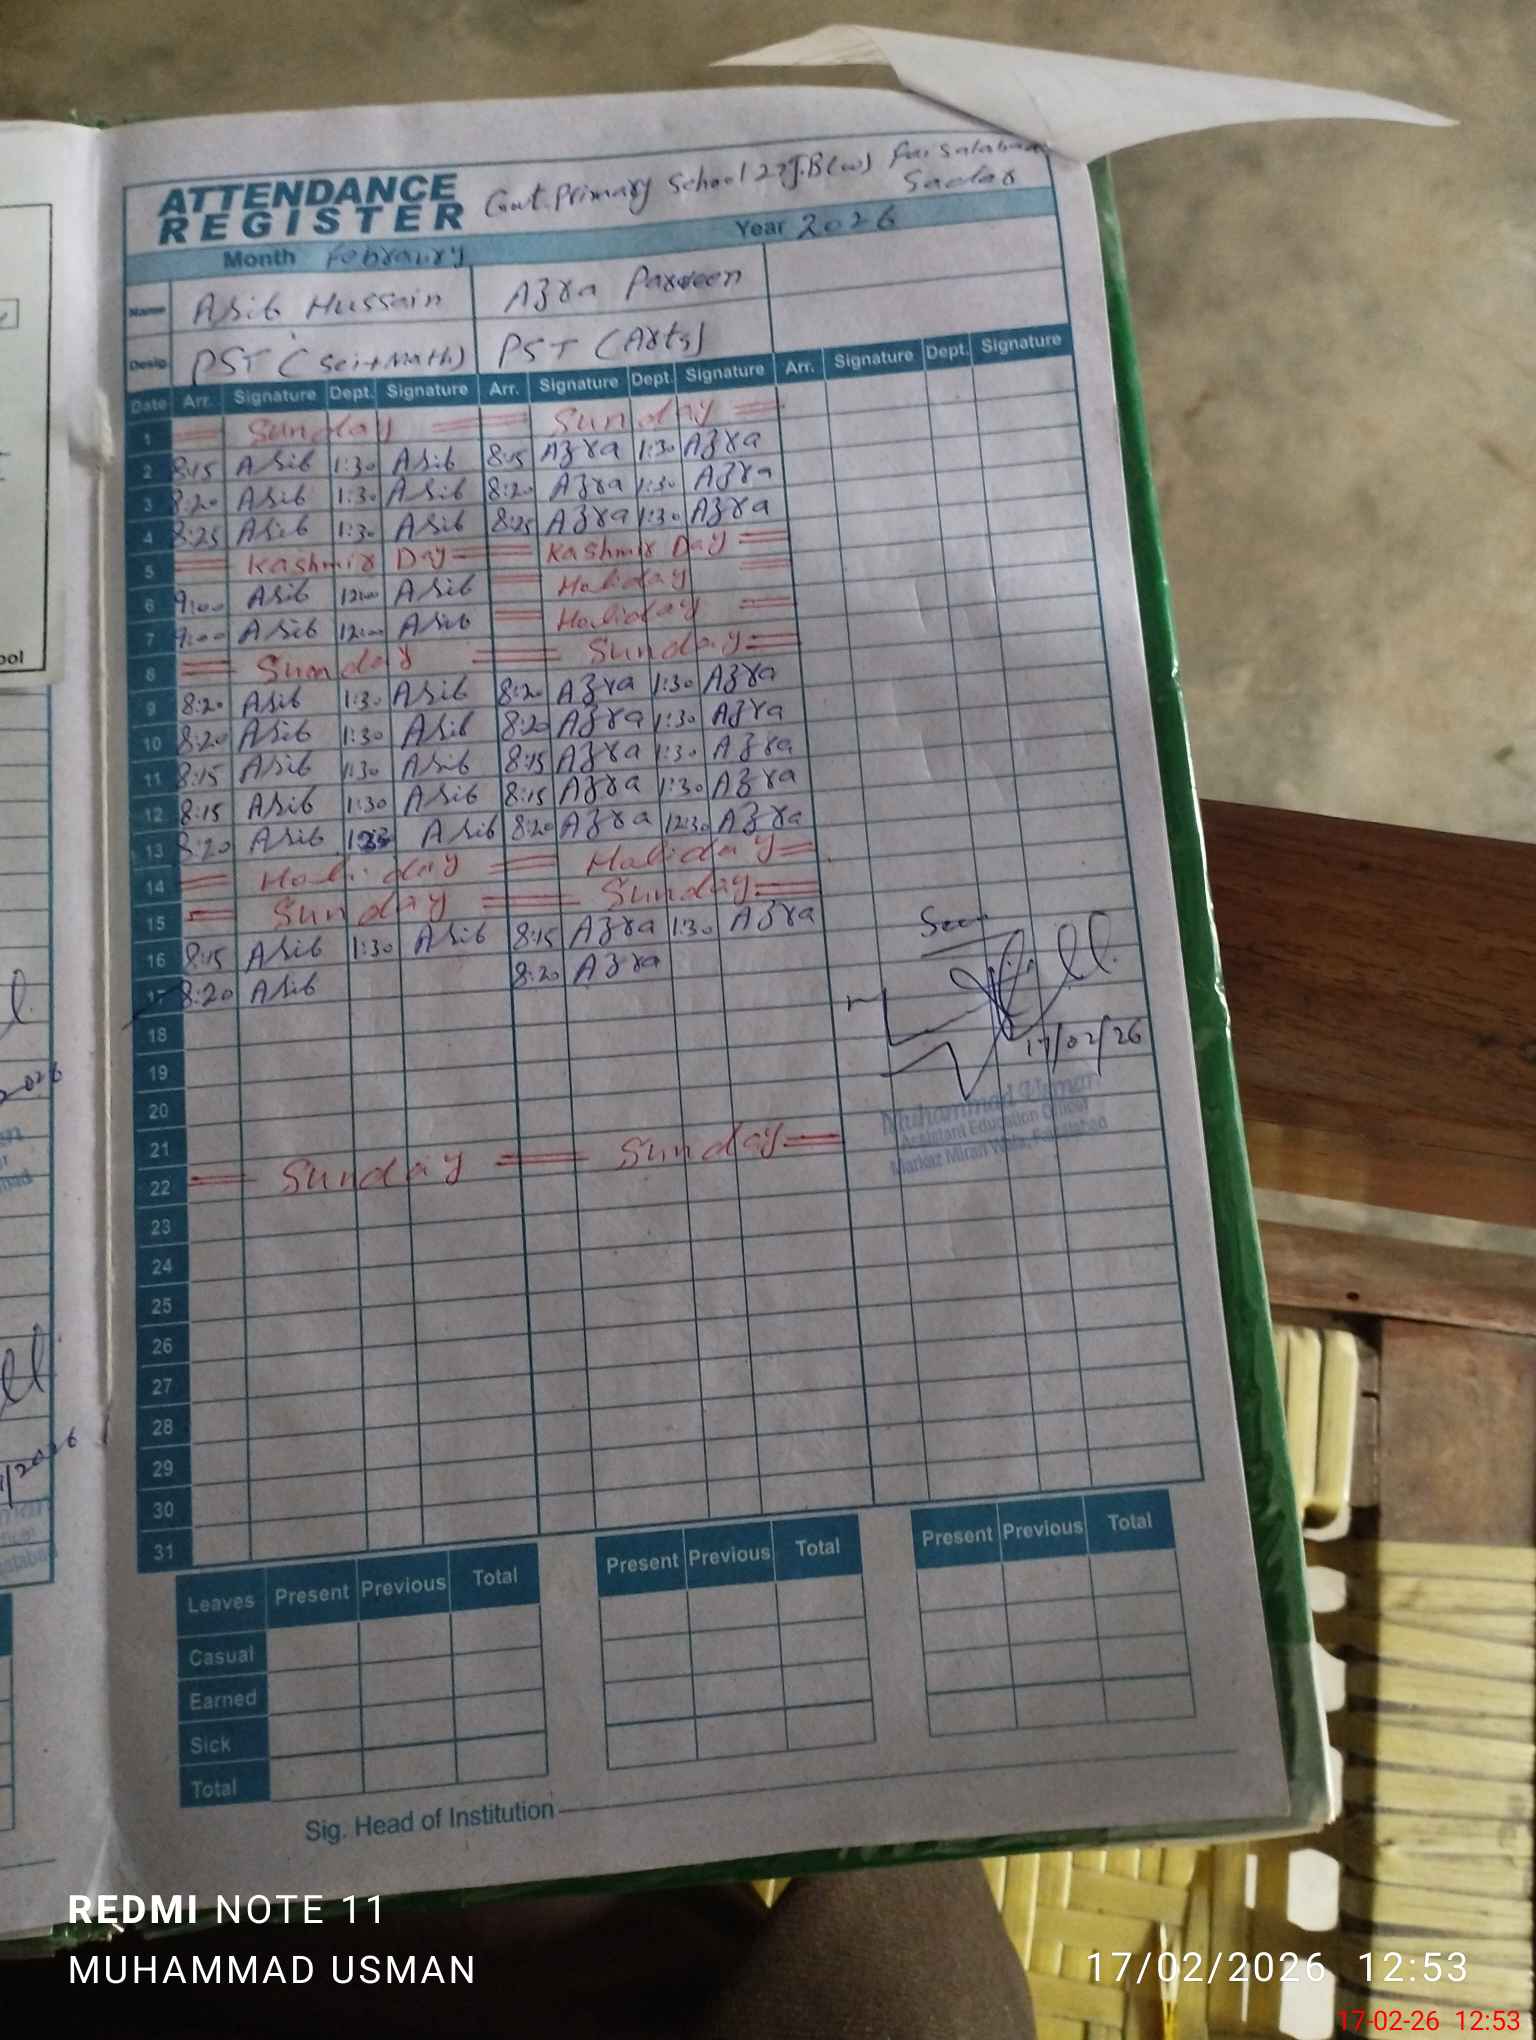 ATTENDANCE REGISTER Govt. Primary School 27 J.B (w) Faisalabad Sadar
Month Febraury Year 2026
Name Asib Hussain Azra Parveen
Desig. PST (Sci+Math) PST (Arts)
Date Arr. Signature Dept. Signature Arr. Signature Dept. Signature Arr. Signature Dept. Signature
1 Sunday Sunday
2 8:15 Asib 1:30 Asib 8:15 Azra 1:30 Azra
3 8:20 Asib 1:30 Asib 8:20 Azra 1:30 Azra
4 8:25 Asib 1:30 Asib 8:25 Azra 1:30 Azra
5 Kashmir Day Kashmir Day
6 9:00 Asib 12:00 Asib Holiday
7 9:00 Asib 12:00 Asib Holiday
8 Sunday Sunday
9 8:20 Asib 1:30 Asib 8:20 Azra 1:30 Azra
10 8:20 Asib 1:30 Asib 8:20 Azra 1:30 Azra
11 8:15 Asib 1:30 Asib 8:15 Azra 1:30 Azra
12 8:15 Asib 1:30 Asib 8:15 Azra 1:30 Azra
13 8:20 Asib Asib 8:20 Azra 12:30 Azra
14 Holiday Holiday
15 Sunday Sunday
16 8:15 Asib 1:30 Asib 8:15 Azra 1:30 Azra
17 8:20 Asib 8:20 Azra
Seen
18
17/02/26
19
20
Muhammad Usman
Assistant Education Officer
Markaz Miran Wala, Faisalabad
21
22 Sunday Sunday
23
24
25
26
27
28
29
30
31
Leaves Present Previous Total Present Previous Total Present Previous Total
Casual
Earned
Sick
Total
Sig. Head of Institution
REDMI NOTE 11
MUHAMMAD USMAN
17/02/2026 12:53
17-02-26 12:53